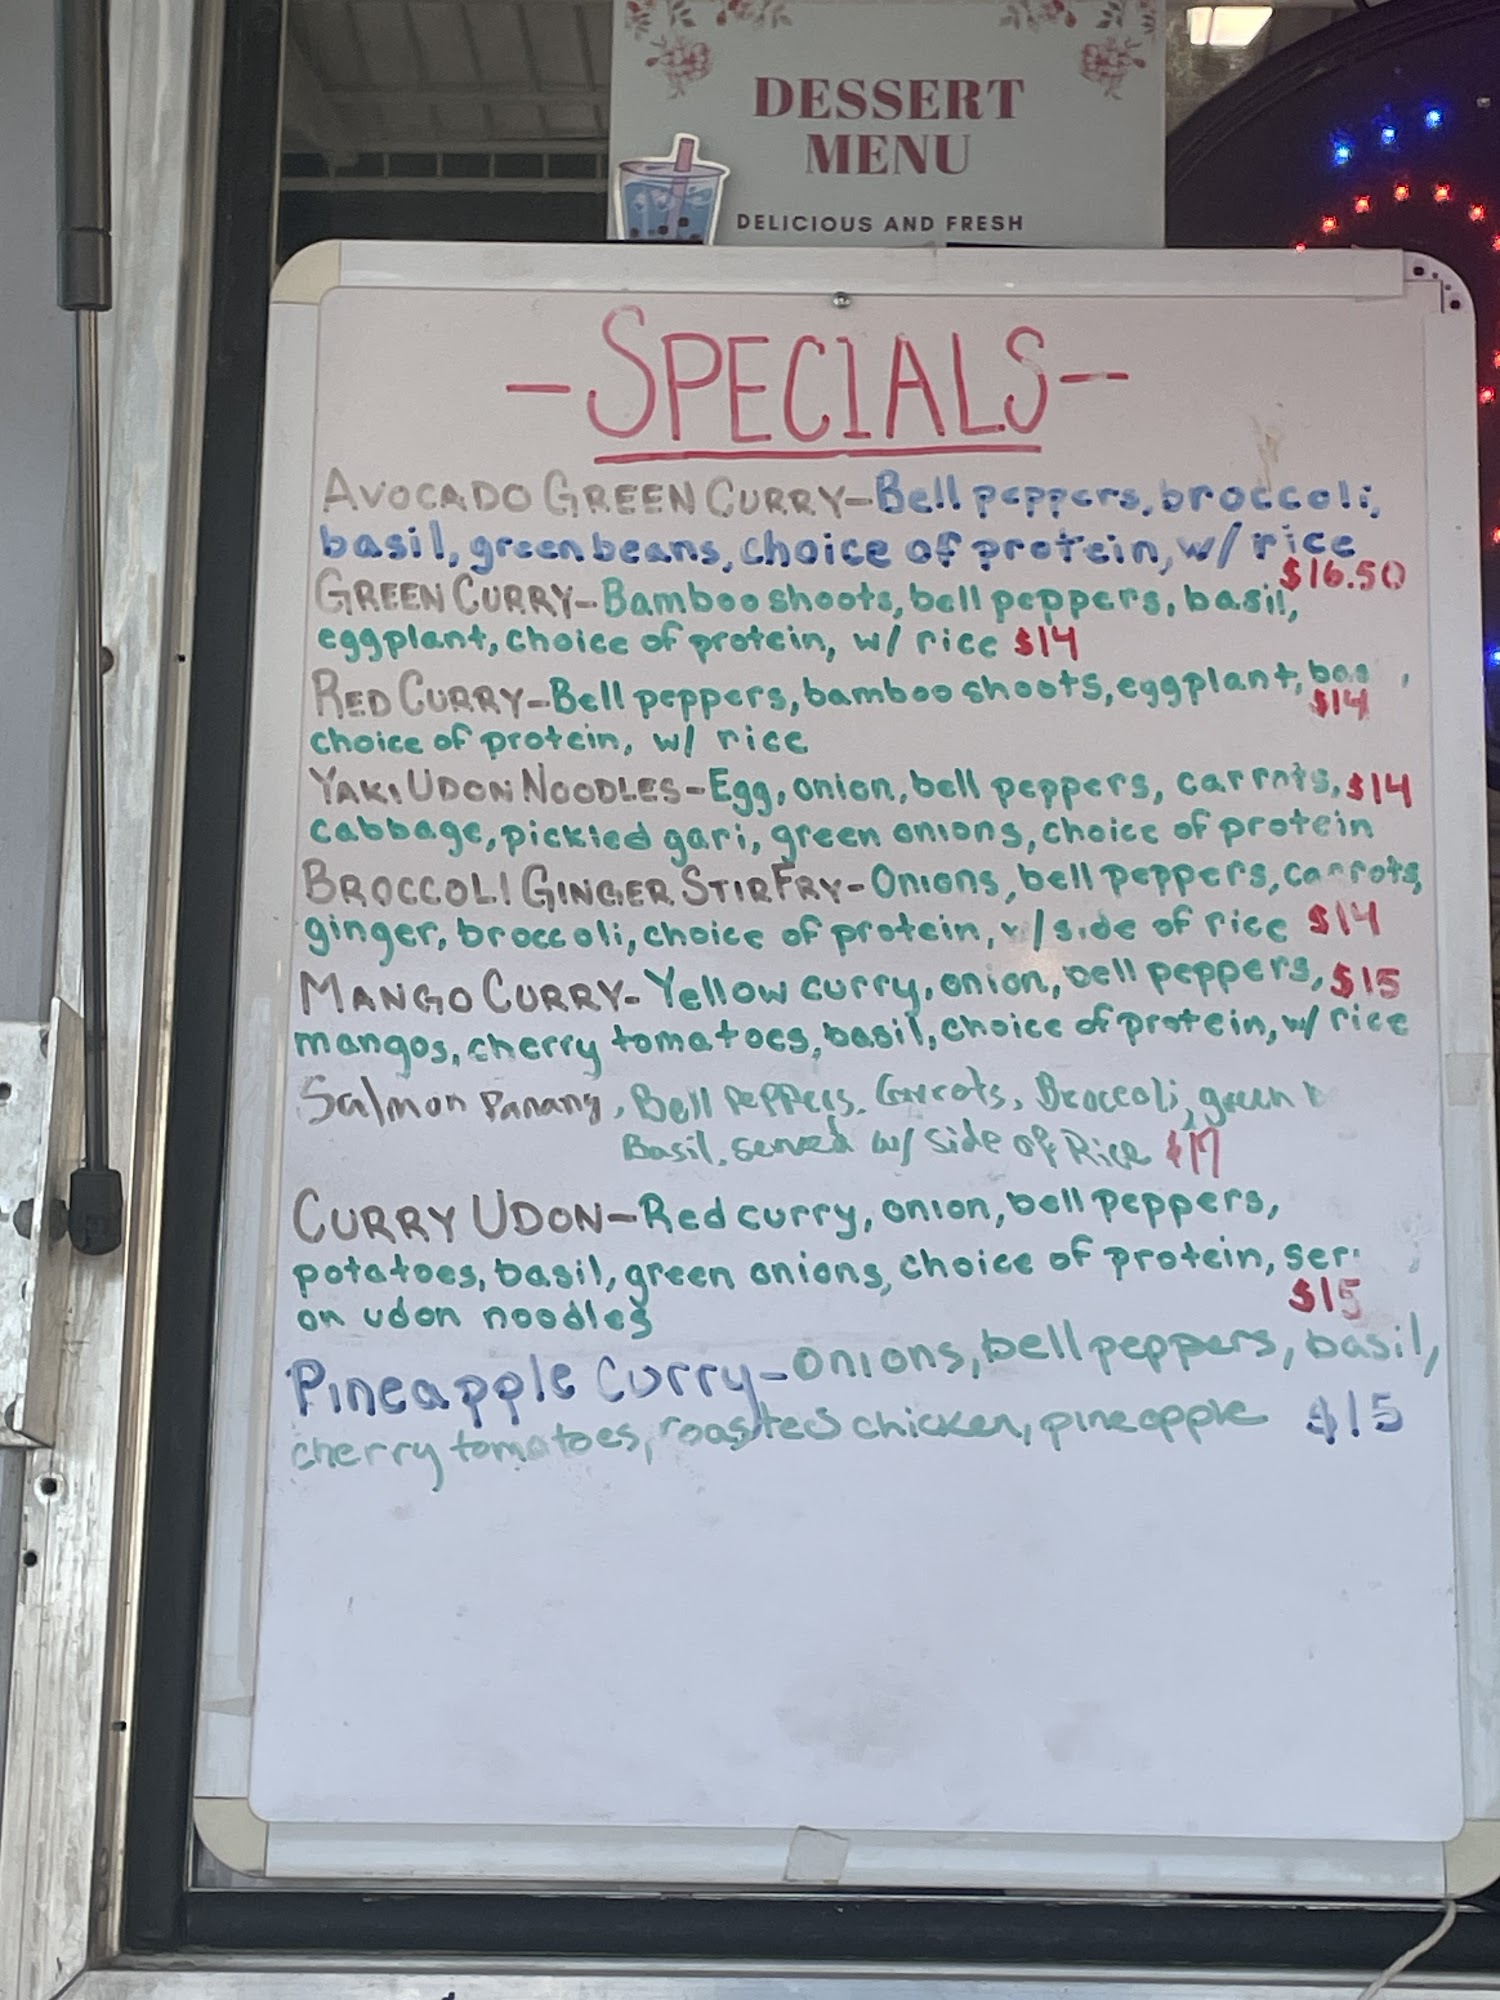 DESSERT
MENU
DELICIOUS AND FRESH
-SPECIALS--
AVOCADO GREEN CURRY-Bell peppers, broccoli,
basil, green beans, choice of protein, w/ rice
$16.50
GREEN CURRY-Bamboo shoots, bell peppers, basil,
eggplant, choice of protein, w/ rice $14
RED CURRY-Bell peppers, bamboo shoots, eggplant, bas ,
$14
choice of protein, w/ rice
YAKI UDON NOODLES-Egg, onion, bell peppers, carrots, $14
cabbage, pickled gari, green onions, choice of protein
BROCCOLI GINGER STIR FRY-Onions, bell peppers, carrots,
ginger, broccoli, choice of protein, w/side of rice $14
MANGO CURRY-Yellow curry, onion, bell peppers, $15
mangos, cherry tomatoes, basil, choice of protein, w/ rice
Salmon Panang, Bell Peppers, Carrots, Broccoli, green b
Basil, served w/ side of Rice $17
CURRY UDON-Red curry, onion, bell peppers,
potatoes, basil, green onions, choice of protein, ser
on udon noodles
$15
Pineapple Curry-Onions, bell peppers, basil,
cherry tomatoes, roasted chicken, pineapple $15